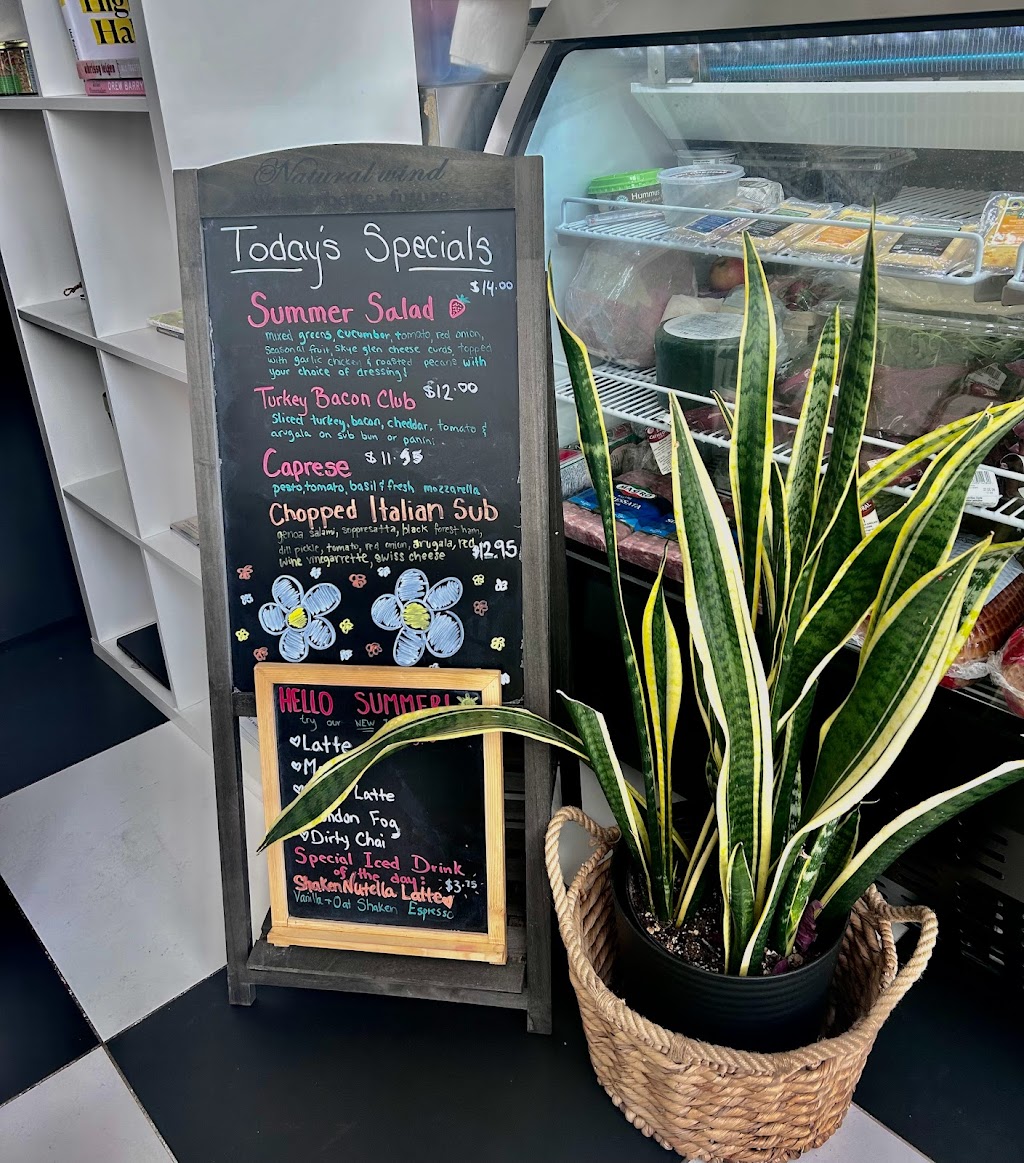 Hig
Ha
DREW BARRY
Natural wind
Today's Specials
$14.00
Summer Salad
mixed greens, cucumber, tomato, red onion,
Seasonal fruit, skye glen cheese curds, topped
with garlic chicken & roasted pecans with
your choice of dressing!
Turkey Bacon Club $12.00
Sliced turkey, bacon, cheddar, tomato &
arugala on sub bun or panini.
Caprese $11.95
pesto, tomato, basil & fresh mozzarella
Chopped Italian Sub
genoa salami, soppresatta, black forest ham,
dill pickle, tomato, red onion, arugala, red
wine vinegarrette, swiss cheese $12.95
HELLO SUMMER!
try our NEW
Latte
Latte
ndon Fog
Dirty Chai
Special Iced Drink
of the day:
Shaken Nutella Latte $3.75
Vanilla + Oat Shaken Espresso
Hummus